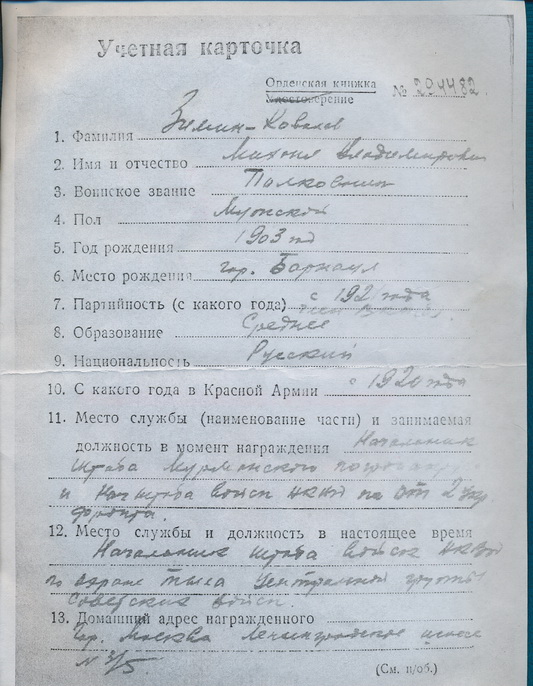 Учетная карточка
Орденская книжка
Удостоверение
№ 204482
1. Фамилия Зимин-Ковалев
2. Имя и отчество Михаил Владимирович
3. Воинское звание Полковник
4. Пол Мужской
5. Год рождения 1903 год
6. Место рождения гор. Барнаул
7. Партийность (с какого года) с 192 года
8. Образование Среднее
9. Национальность Русский
10. С какого года в Красной Армии с 1920 года
11. Место службы (наименование части) и занимаемая
должность в момент награждения Начальник
штаба Мурманского
и Нач штаба войск НКВД по 2 Укр.
фронта.
12. Место службы и должность в настоящее время
Начальник штаба войск НКВД
по охране тыла Центральной группы
Советских войск.
13. Домашний адрес награжденного
Гор. Москва Ленинградское шоссе
N 3/5
(См. н/об.)